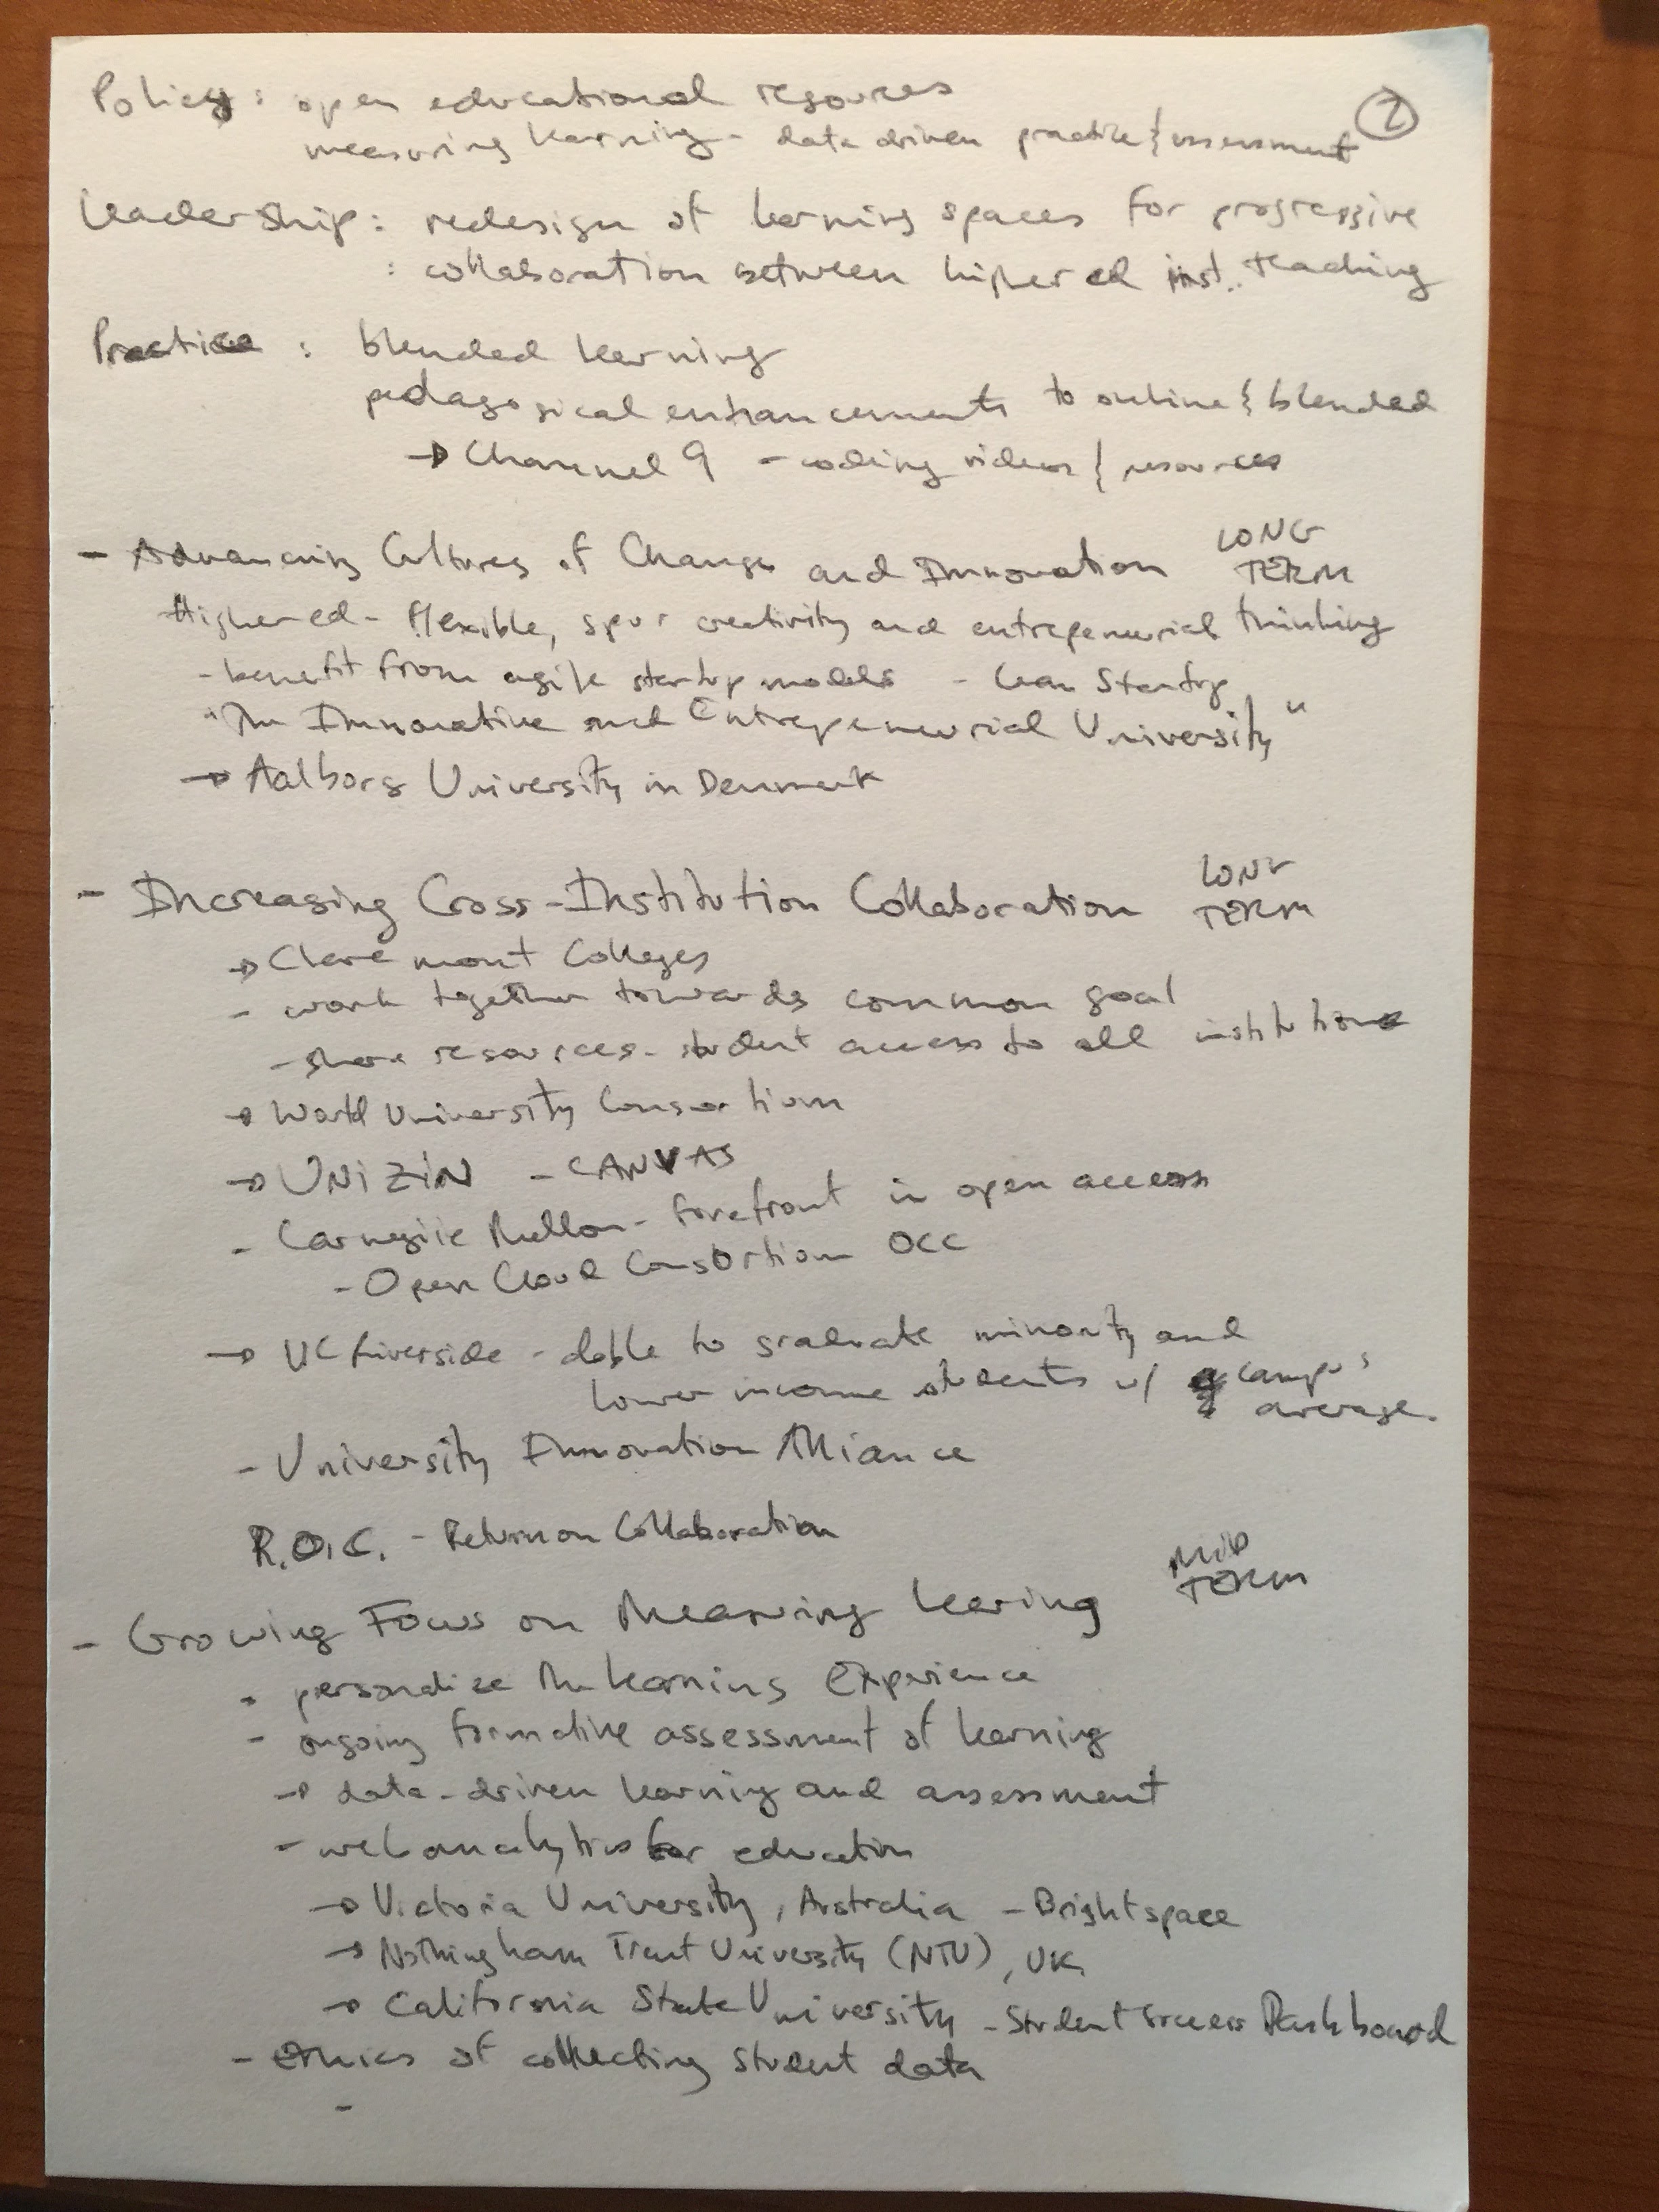 Policy : open educational resources
②
measuring learning - data driven practice & assessment
Leadership : redesign of learning spaces for progressive
: collaboration between higher ed inst. teaching
Practice : blended learning
pedagogical enhancements to online & blended
→ Channel 9 - coding videos & resources
- Advancing Cultures of Change and Innovation LONG TERM
Higher ed - flexible, spur creativity and entrepeneurial thinking
- benefit from agile startup models - Lean Startup
"The Innovative and Entrepeneurial University"
→ Aalborg University in Denmark
- Increasing Cross-Institution Collaboration LONG TERM
→ Claremont Colleges
- work together towards common goal
- share resources - student access to all institutions
→ World University Consortium
→ UNIZIN - CANVAS
- Carnegie Mellon - forefront in open access
- Open Cloud Consortium OCC
→ UC Riverside - able to graduate minority and
lower income students w/ campus
average.
- University Innovation Alliance
R.O.C. - Return on Collaboration
- Growing Focus on Measuring Learing MID TERM
- personalize the learning Experience
- ongoing formative assessment of learning
→ data-driven learning and assessment
- web analytics for education
→ Victoria University, Australia - Brightspace
→ Nothingham Trent University (NTU), UK
→ California State University - Student Success Dashboard
- Ethics of collecting student data
-